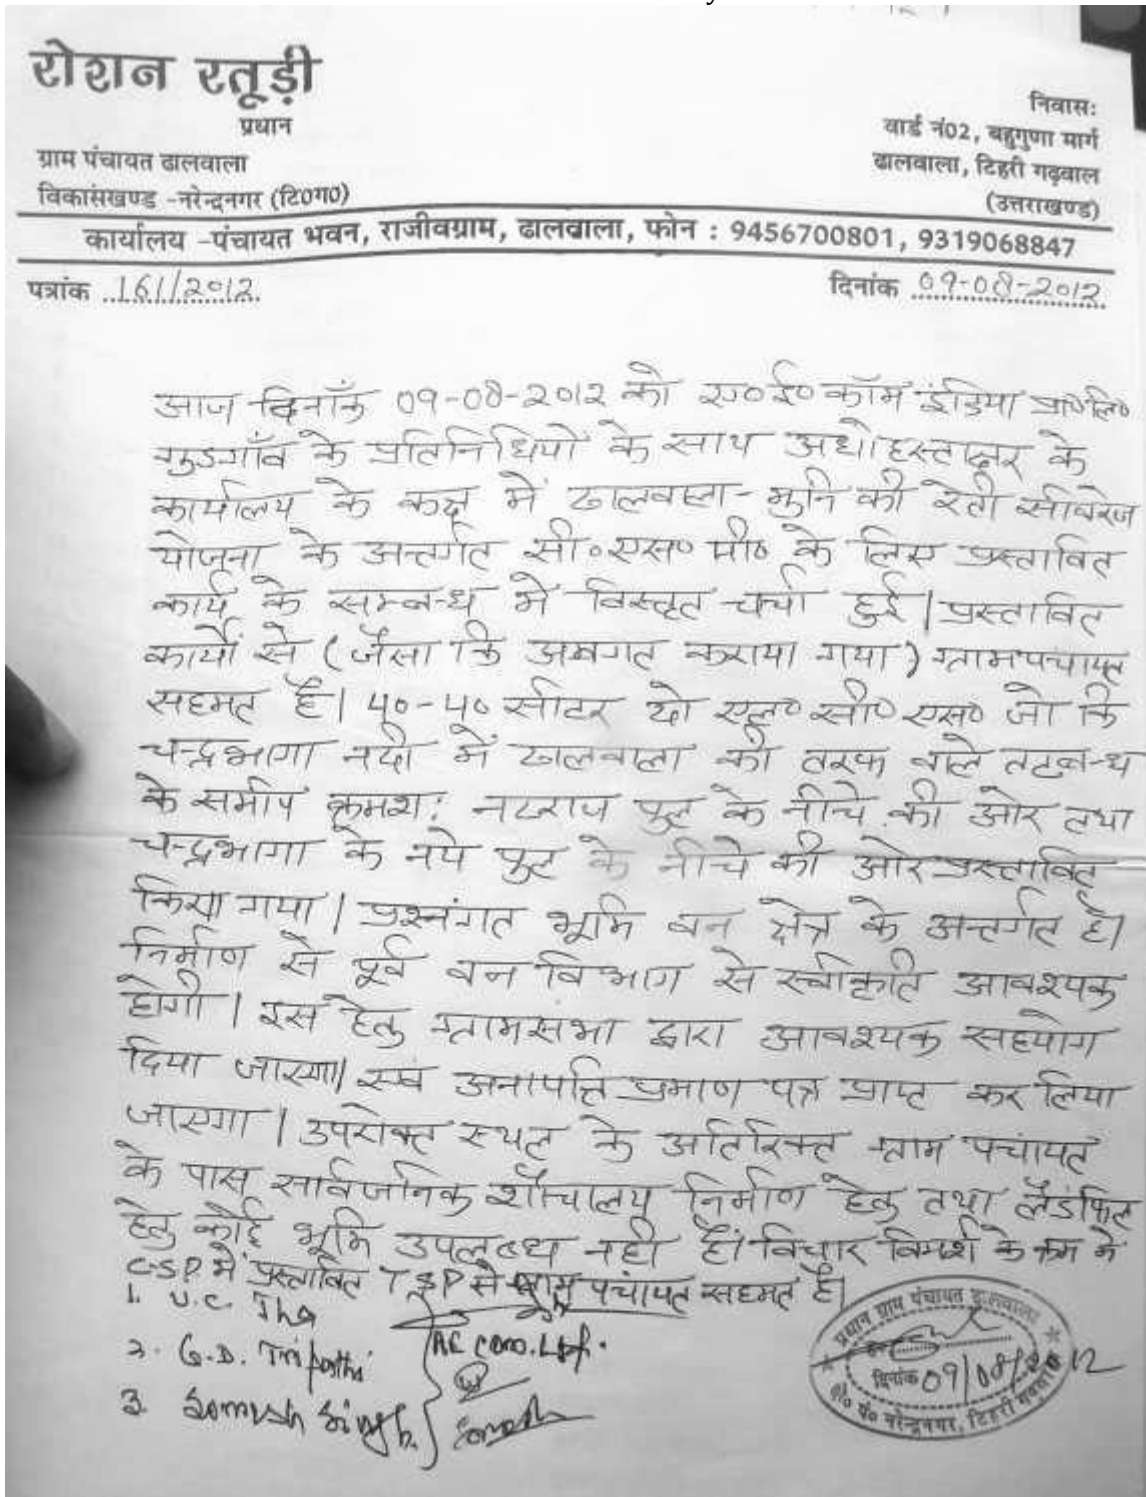 रोशन रतूड़ी
प्रधान
ग्राम पंचायत ढालवाला
विकासंखण्ड -नरेन्द्रनगर (टि0ग0)
निवासः
वार्ड नं02, बहुगुणा मार्ग
ढालवाला, टिहरी गढ़वाल
(उत्तराखण्ड)
कार्यालय -पंचायत भवन, राजीवग्राम, ढालवाला, फोन : 9456700801, 9319068847
पत्रांक 161/2012
दिनांक 09-08-2012
आज दिनाँक 09-08-2012 को ए०ई०कॉम इंडिया प्रा०लि०
गुडगाँव के प्रतिनिधियों के साथ अधोहस्ताक्षर के
कार्यालय के कक्ष में ढालवाला-मुनि की रेती सीवरेज
योजना के अन्तर्गत सी०एस०पी० के लिए प्रस्तावित
कार्य के सम्बन्ध में विस्तृत चर्चा हुई। प्रस्तावित
कार्यों से (जैसा कि अवगत कराया गया) ग्रामपंचायत
सहमत है। 40-40 सीटर दो एल० सी० एस० जो कि
चन्द्रभागा नदी में ढालवाला की तरफ वाले तटबन्ध
के समीप क्रमश: नटराज पुल के नीचे की ओर तथा
चन्द्रभागा के नये पुल के नीचे की ओर प्रस्तावित
किया गया। प्रश्नगत भूमि वन क्षेत्र के अन्तर्गत है।
निर्माण से पूर्व वन विभाग से स्वीकृति आवश्यक
होगी। इस हेतु ग्रामसभा द्वारा आवश्यक सहयोग
दिया जाएगा। एवं अनापत्ति प्रमाण पत्र प्राप्त कर लिया
जाएगा। उपरोक्त स्थल के अतिरिक्त ग्राम पंचायत
के पास सार्वजनिक शौचालय निर्माण हेतु तथा लैंडफिल
हेतु कोई भूमि उपलब्ध नही है। विचार विमर्श के क्रम में
C.S.P. में प्रस्तावित TSP से ग्राम पंचायत सहमत है।
1. U.C. Jha
2. G.D. Tripathi
3. Singh
AECOM.
प्रधान ग्राम पंचायत ढालवाला
दिनांक 09/08/2012
नरेन्द्रनगर, टिहरी गढ़वाल